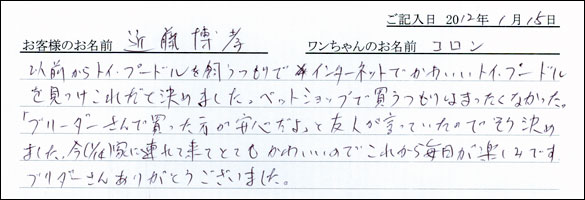 ご記入日 2012年 1月 15日
お客様のお名前 近藤博孝 ワンちゃんのお名前 コロン
以前からトイ・プードルを飼うつもりで インターネットでかわいいトイ・プードル
を見つけこれだと決めました。ペットショップで買うつもりはまったくなかった。
「ブリーダーさんで買った方が安心だよ」と友人が言っていたのでそう決め
ました。今(1/14)家に連れて来てとてもかわいいのでこれから毎日が楽しみです
ブリダーさんありがとうございました。